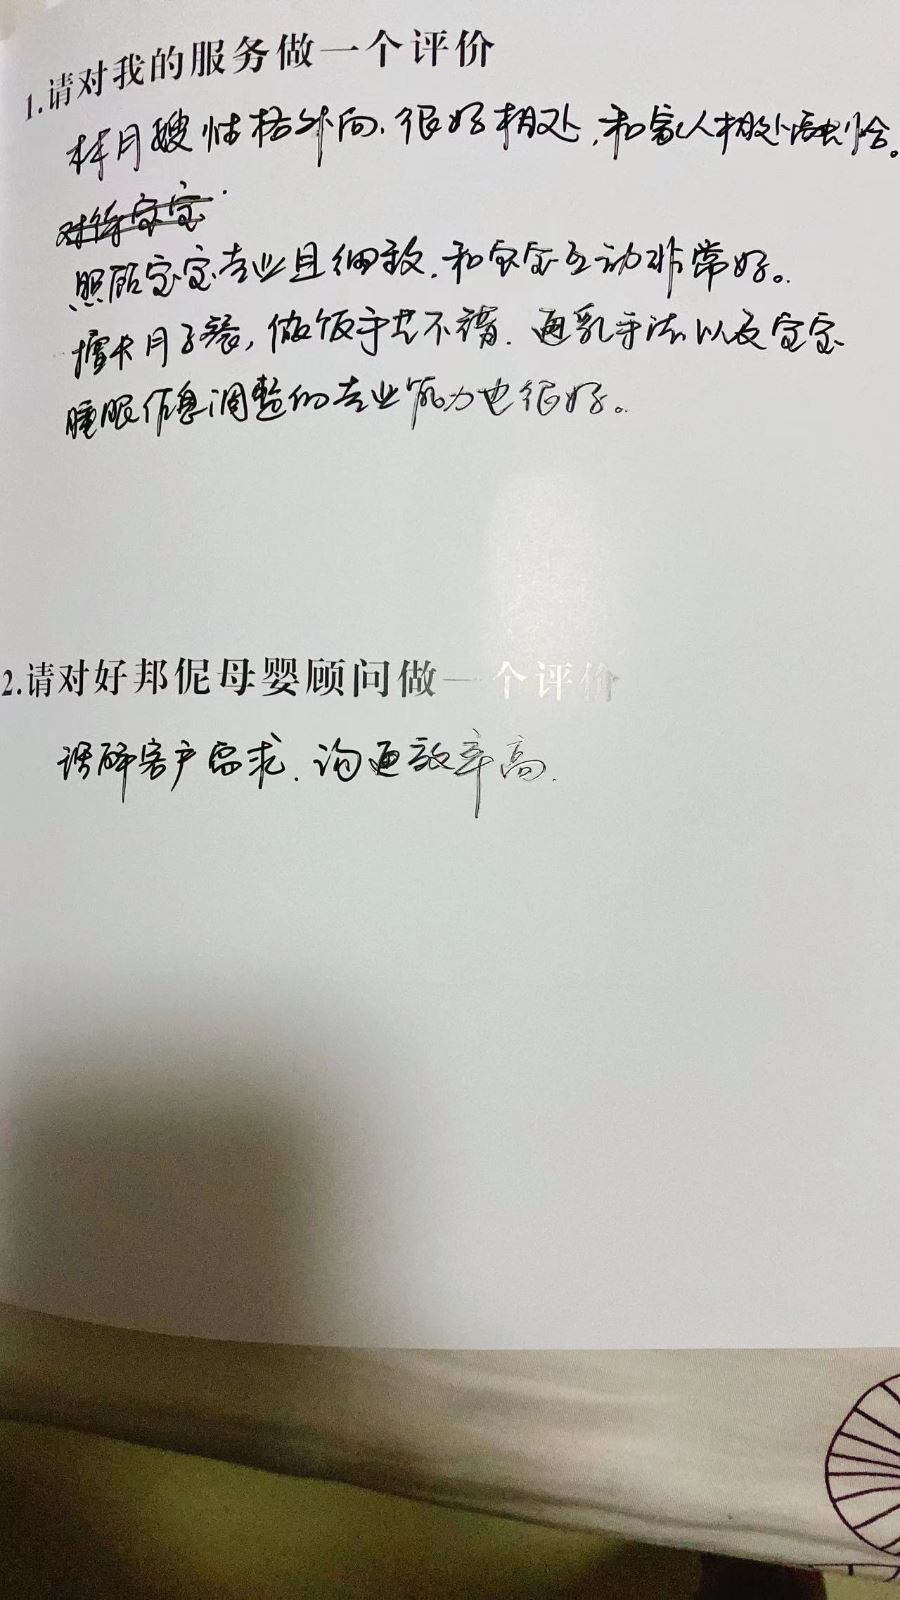 1.请对我的服务做一个评价
林月嫂性格外向、很好相处，和家人相处融洽。
对待宝宝
照顾宝宝专业且细致，和宝宝互动非常好。
擅长月子餐，做饭手艺不错。通乳手法以及宝宝
睡眠作息调整的专业能力也很好。
2.请对好邦伲母婴顾问做一个评价
理解客户需求、沟通效率高.